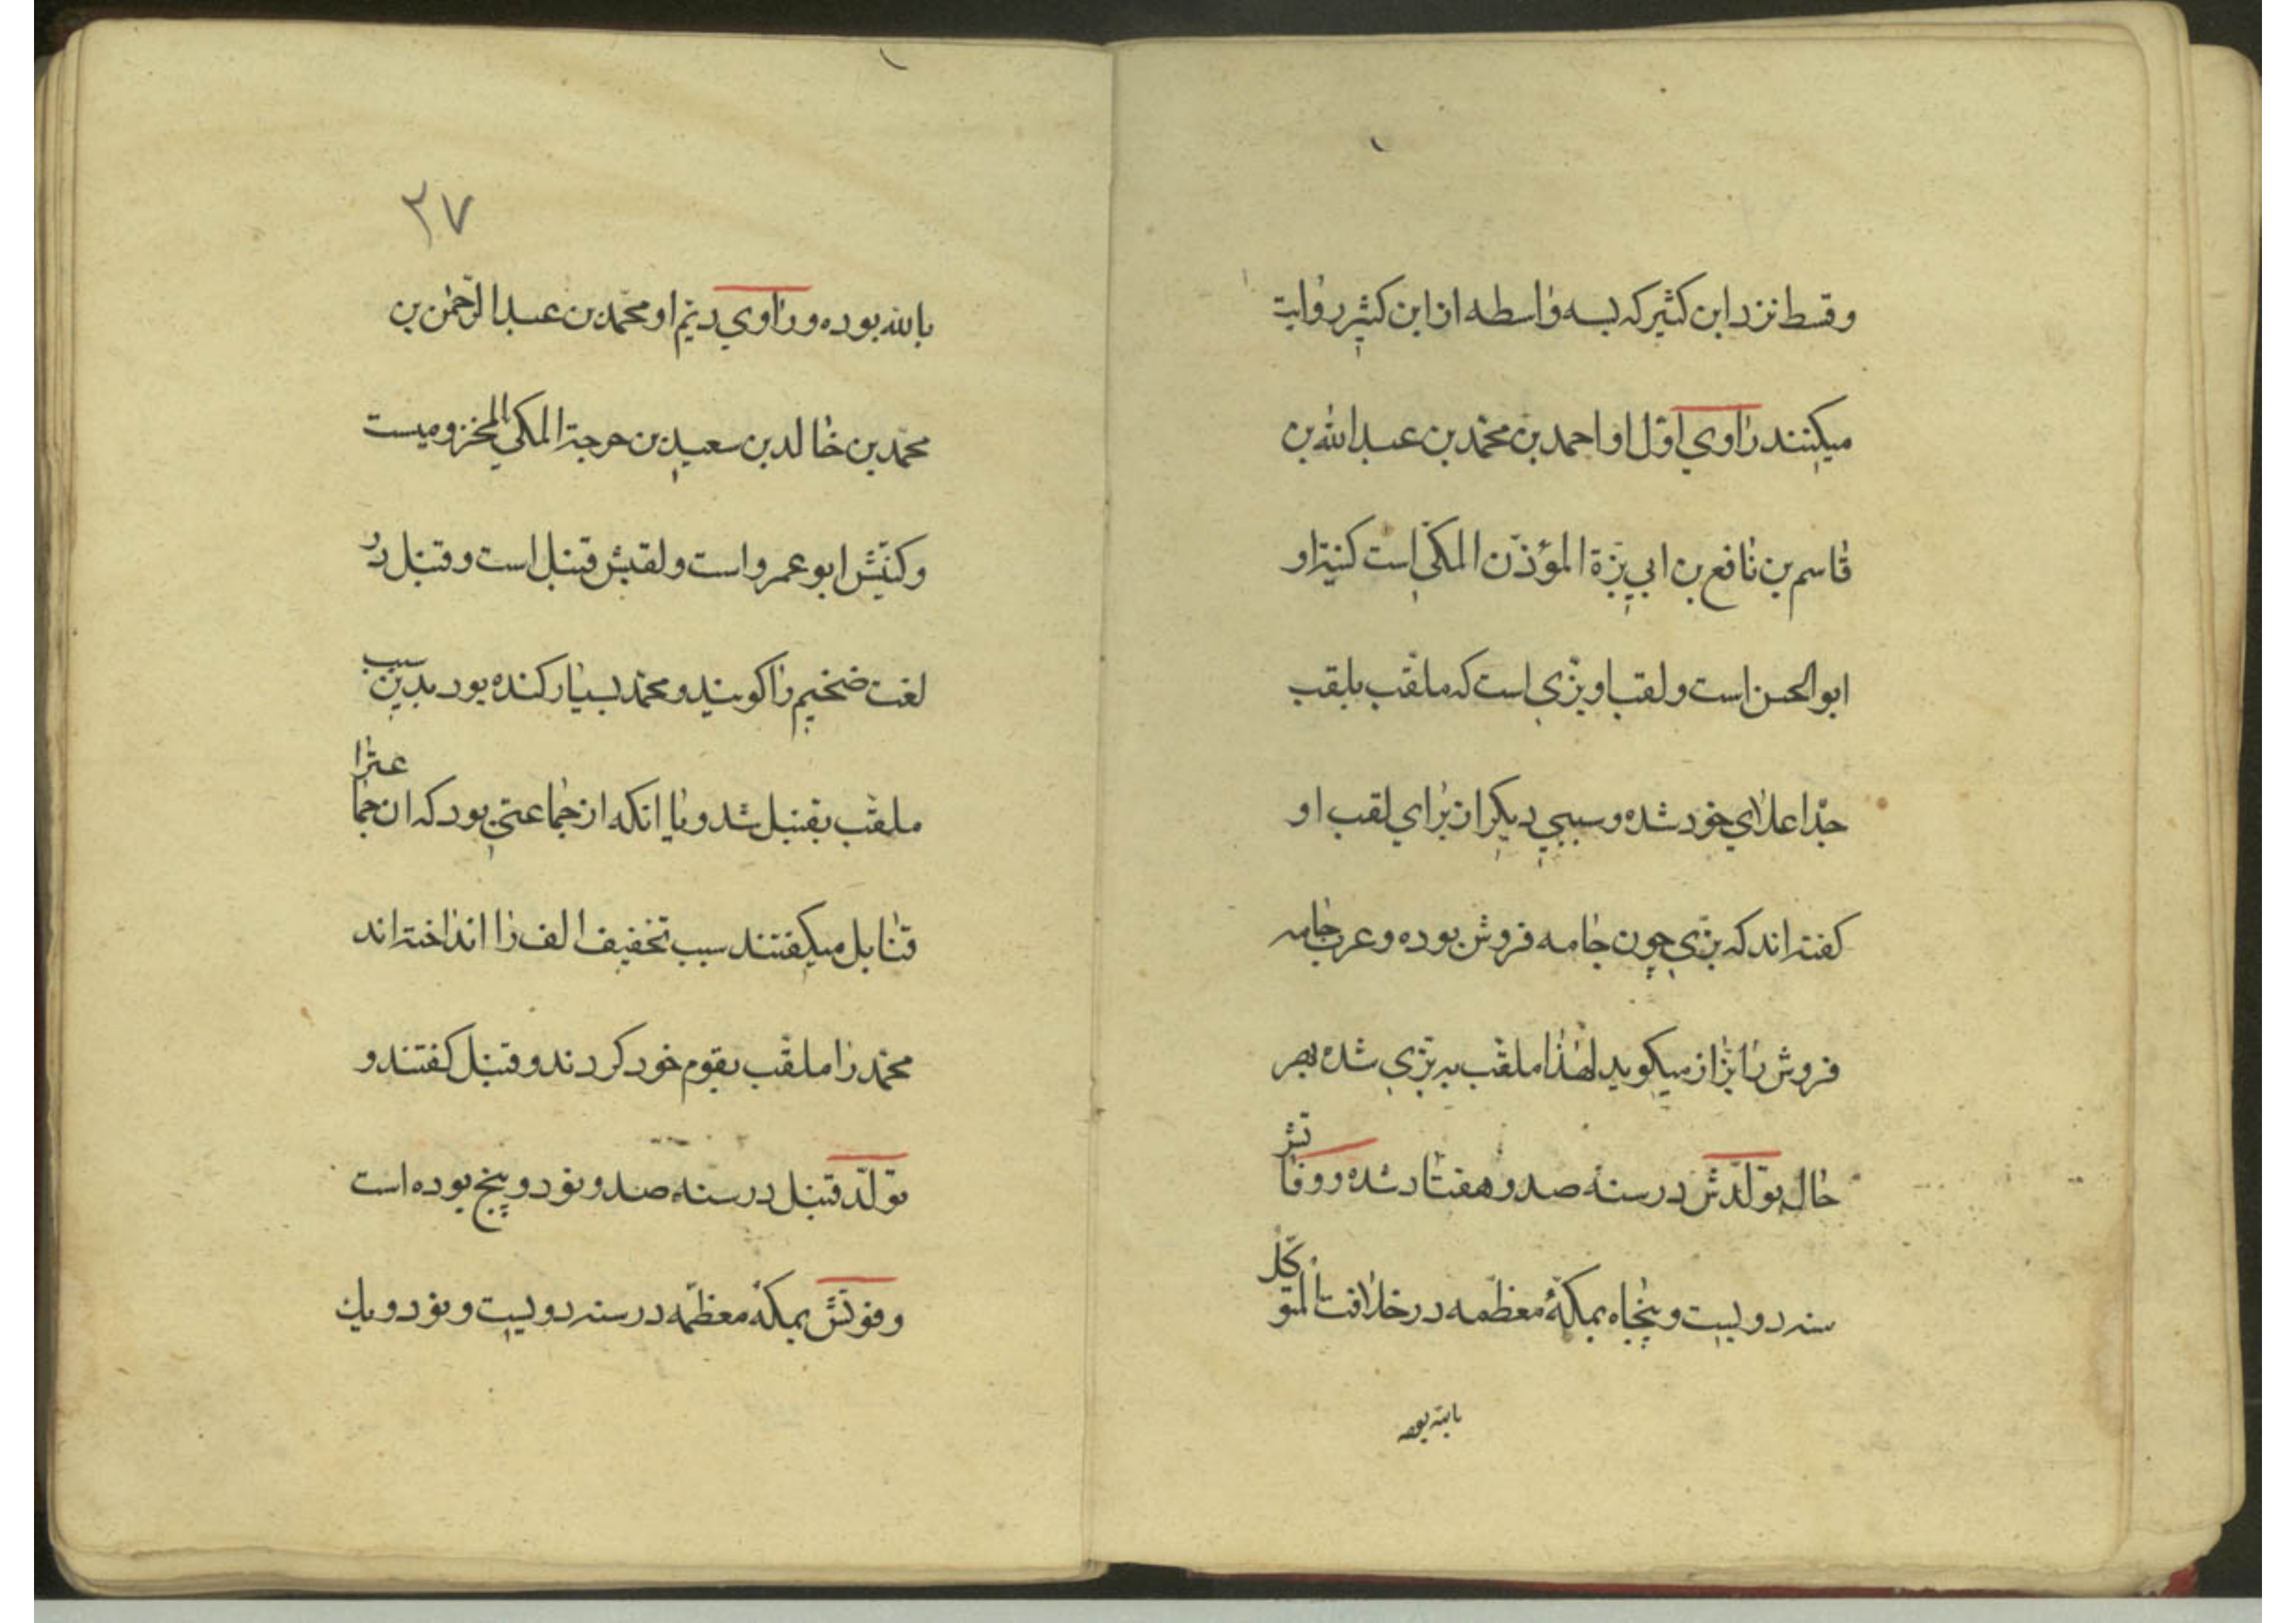 وقسط نزد ابن كثیر که بسه واسطه از ابن كثیر روایة
میکنند راوي اوّل او احمد بن محمّد بن عبدالله بن
قاسم بن نافع بن ابي بزّة المؤذّن المکي است کنیة او
ابوالحسن است و لقب او بزّي است که ملقّب بلقب
جدّ اعلاي خود شده و سببي دیکر از براي لقب او
کفته اند که بزّي چون جامه فروش بوده و عرب جامه
فروش را بزّاز میکوید لهذا ملقّب به بزّي شده بهر
حال تولّدش در سنهٔ صد و هفتاد شده و وفاتش
سنه دویست و پنجاه بمکّهٔ معظّمه در خلافت المتوکّل
بالله بوده
٢٧
بالله بوده و راوي دیّم او محمّد بن عبدالرّحمٰن بن
محمّد بن خالد بن سعید بن جرجة المکي المخزومیست
و کنیتش ابوعمرو است و لقبش قنبل است و قنبل در
لغت ضخیم را کویند و محمّد بسیار کنده بود بدین سبب
ملقّب بقنبل شد و یا انکه از جماعتي بود که ان جماعترا
قنابل میکفتند سبب تخفیف الف را انداخته اند
محمّد را ملقّب بقوم خود کردند و قنبل کفتند و
تولّد قنبل در سنه صد و نود و پنج بوده است
و فوتش بمکهٔ معظّمه در سنه دویست و نود و یك